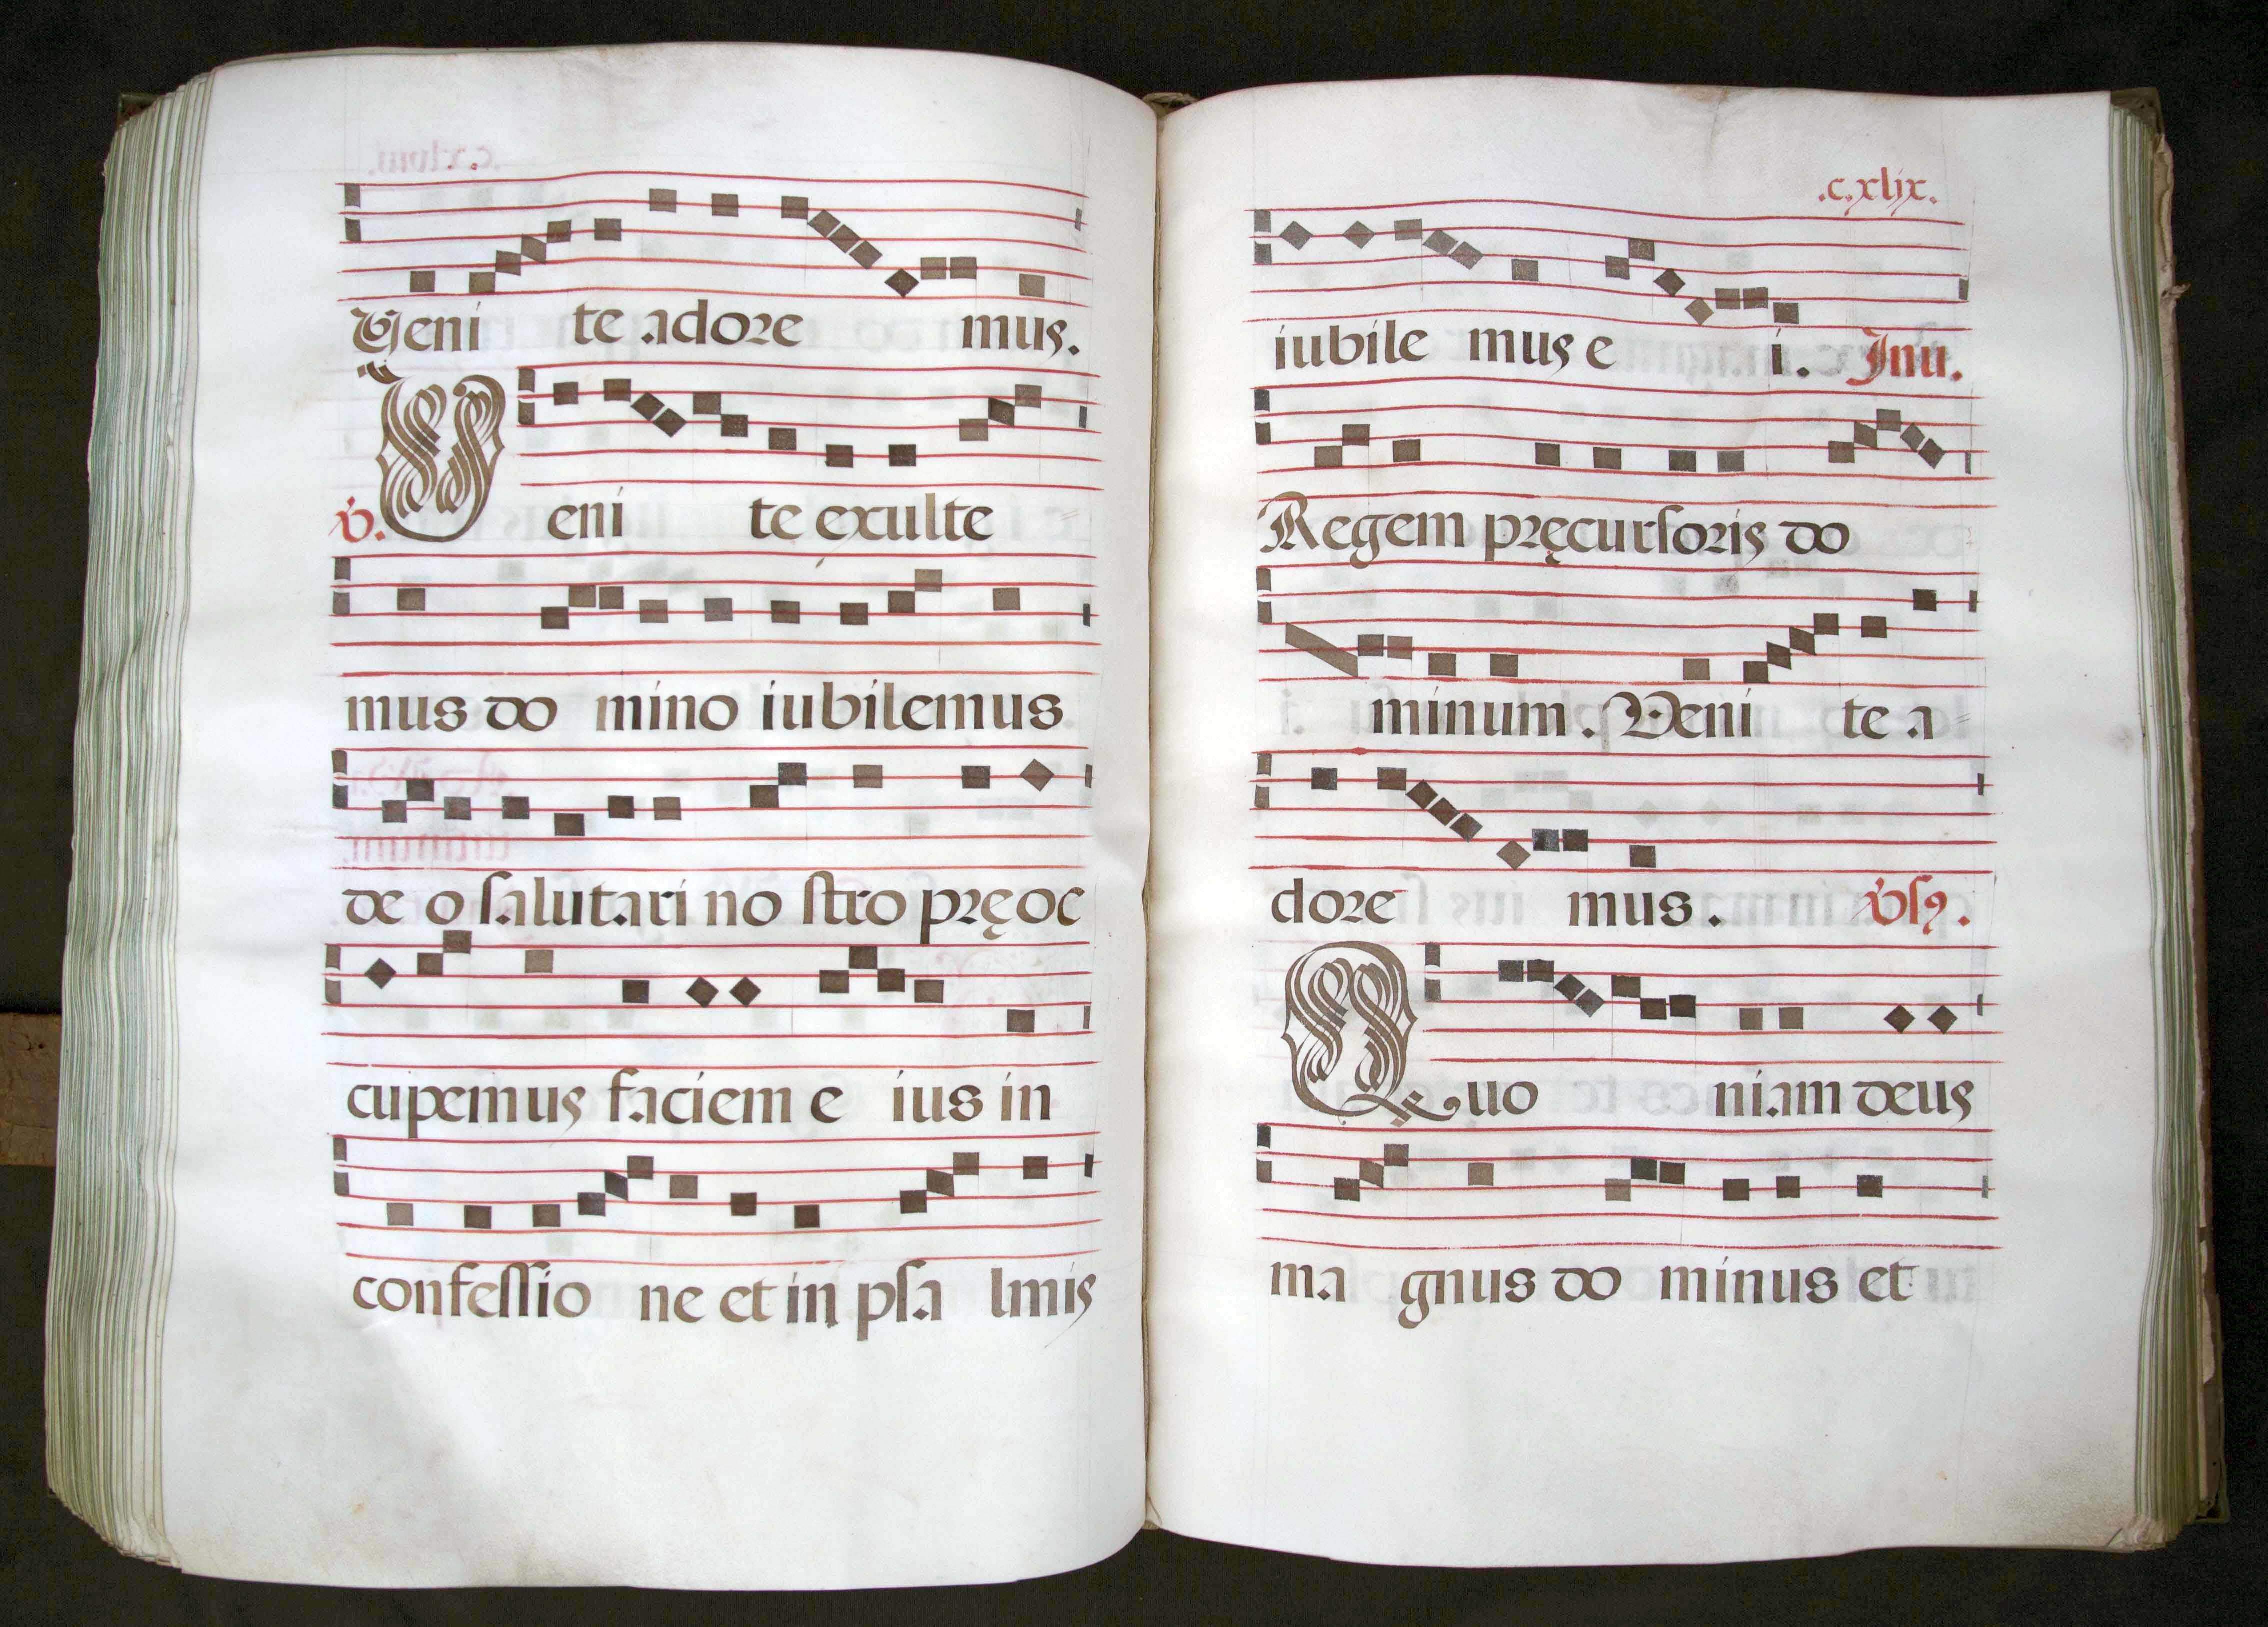 Veni te adore mus.
v. Veni te exulte
mus do mino iubilemus
de o salutari no stro pręoc
cupemus faciem e ius in
confessio ne et in psa lmis
.c.xlix.
iubile mus e i. Inu.
Regem pręcursoris do
minum. Veni te a
dore mus. vsꝰ.
Quo niam deus
ma gnus do minus et